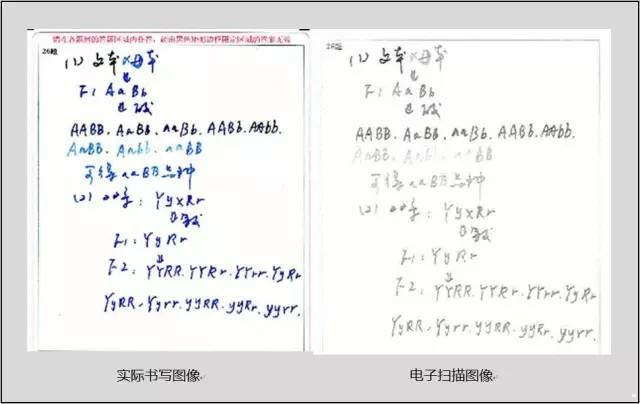 请在各题目的答题区域内作答，超出黑色矩形边框限定区域的答案无效
26题
(1) 父本 × 母本
F1 AaBb
AABB. AaBb. aaBb. AABb. AAbb.
AaBB. Aabb. aaBB
可得aaBB品种
(2) YyxRr
F1: YyRr
F2: YYRR. YYRr. YYrr. YyRr
YyRR. Yyrr. yyRR. yyRr. yyrr.
26题
(1) 父本 × 母本
F1 AaBb
AABB. AaBb. aaBb. AABb. AAbb.
AaBB. Aabb. aaBB
可得aaBB品种
(2) YyxRr
F1: YyRr
F2: YYRR. YYRr. YYrr. YyRr
YyRR. Yyrr. yyRR. yyRr. yyrr.
实际书写图像
电子扫描图像